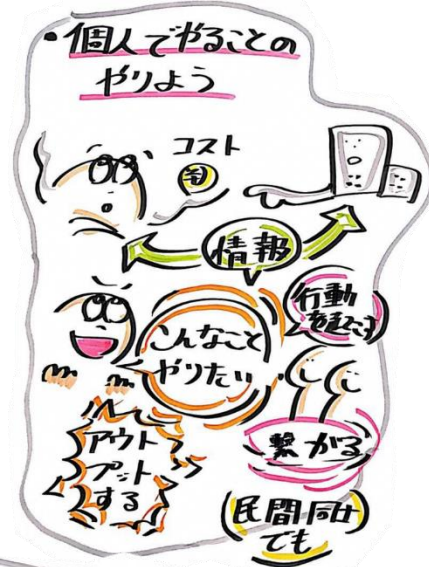 ・個人でやることの
やりよう
コスト
情報
行動
を起こす
こんなこと
やりたい
アウト
プット
する
繋がる
(民間同士)
でも